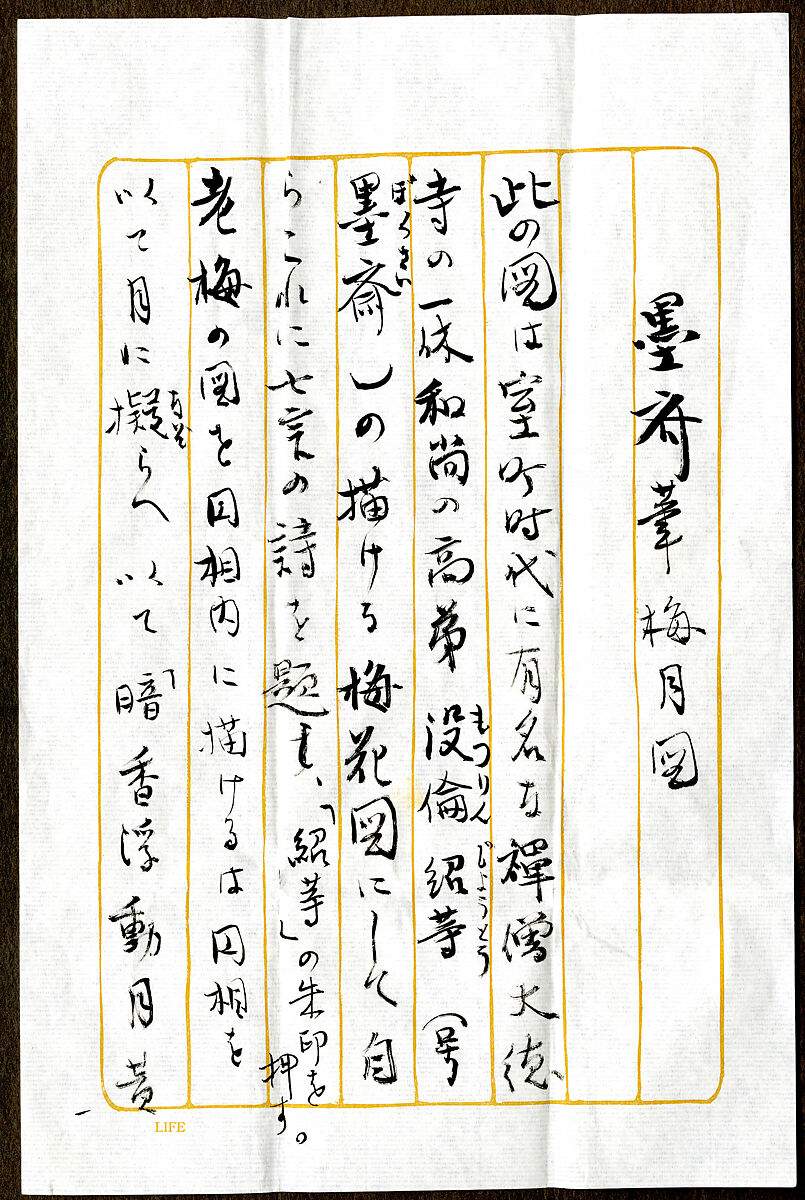 墨斎筆梅月図
此の図は室町時代に有名な禅僧大徳
寺の一休和尚の高弟没倫紹等(号
もつりん じょうとう
墨斎)の描ける梅花図にして自
ぼくさい
らこれに七言の詩を題す、「紹等」の朱印を押す。
老梅の図を円相内に描けるは円相を
以て月に擬らへ以て「暗香浮動月黄
LIFE